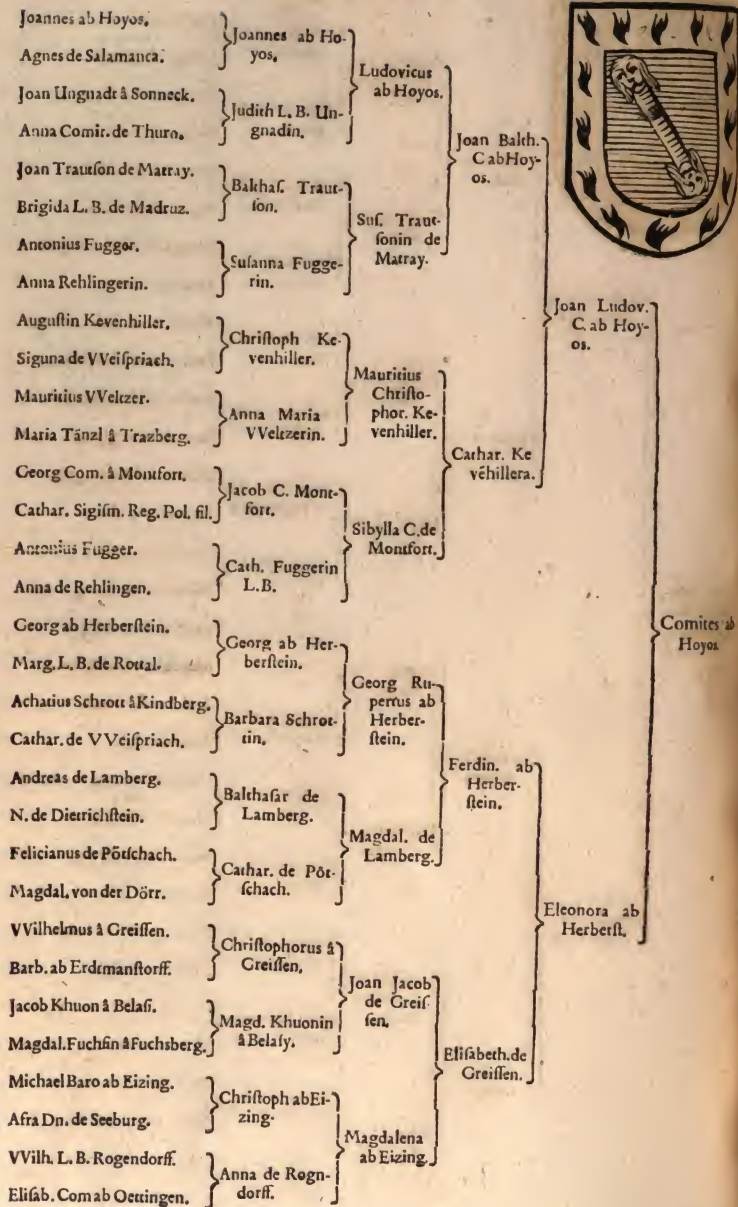 Joannes ab Hoyos.
Agnes de Salamanca.
Joan Ungnadt â Sonneck.
Anna Comit. de Thurn.
Joan Trautſon de Matray.
Brigida L. B. de Madruz.
Antonius Fugger.
Anna Rehlingerin.
Auguſtin Kevenhiller.
Siguna de VVeiſpriach.
Mauritius VVeltzer.
Maria Tänzl â Trazberg.
Georg Com. â Montfort.
Cathar. Sigiſm. Reg. Pol. fil.
Antonius Fugger.
Anna de Rehlingen.
Georg ab Herberſtein.
Marg. L. B. de Rottal.
Achatius Schrott â Kindberg.
Cathar. de VVeiſpriach.
Andreas de Lamberg.
N. de Dietrichſtein.
Felicianus de Pötſchach.
Magdal. von der Dörr.
VVilhelmus â Greiſſen.
Barb. ab Erdtmanſtorff.
Jacob Khuon â Belaſi.
Magdal. Fuchſin â Fuchsberg.
Michael Baro ab Eizing.
Afra Dn. de Seeburg.
VVilh. L. B. Rogendorff.
Eliſab. Com ab Oettingen.
Joannes ab Ho-
yos.
Judith L. B. Un-
gnadin.
Balthaſ. Traut-
ſon.
Suſanna Fugge-
rin.
Chriſtoph Ke-
venhiller.
Anna Maria
VVeltzerin.
Jacob C. Mont-
fort.
Cath. Fuggerin
L.B.
Georg ab Her-
berſtein.
Barbara Schrot-
tin.
Balthaſar de
Lamberg.
Cathar. de Pöt-
ſchach.
Chriſtophorus â
Greiſſen.
Magd. Khuonin
â Belaſy.
Chriſtoph ab Ei-
zing.
Anna de Rogn-
dorff.
Ludovicus
ab Hoyos.
Suſ. Traut-
ſonin de
Matray.
Mauritius
Chriſto-
phor. Ke-
venhiller.
Sibylla C. de
Montfort.
Georg Ru-
pertus ab
Herber-
ſtein.
Magdal. de
Lamberg.
Joan Jacob
de Greiſ-
ſen.
Magdalena
ab Eizing.
Joan Balth.
C ab Hoy-
os.
Cathar. Ke
vēhillera.
Ferdin. ab
Herber-
ſtein.
Eliſabeth. de
Greiſſen.
Joan Ludov.
C. ab Hoy-
os.
Eleonora ab
Herberſt.
Comites ab
Hoyos